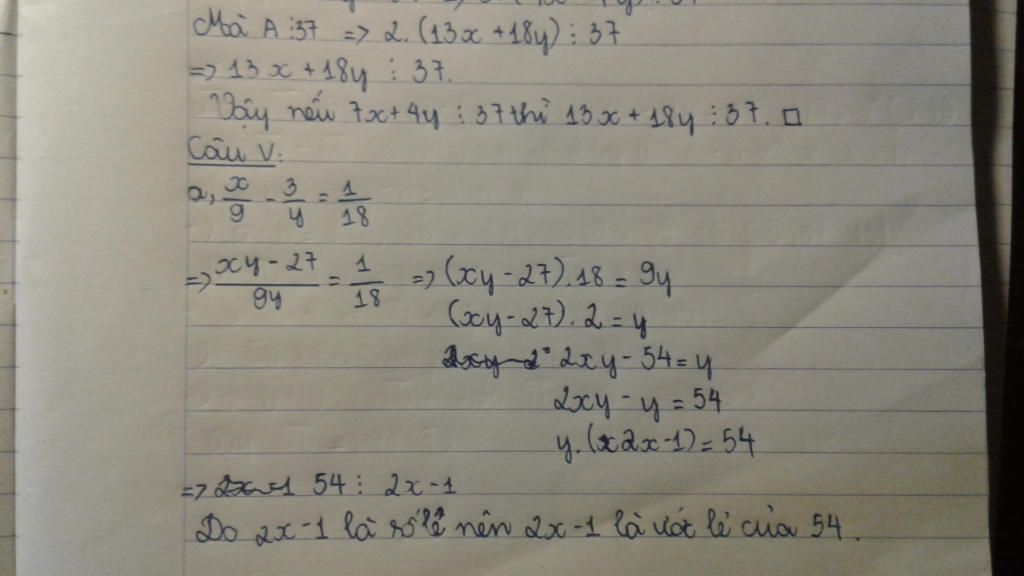 Mà A ⋮ 37 => 2.(13x + 18y) ⋮ 37
=> 13x + 18y ⋮ 37.
Vậy nếu 7x + 4y ⋮ 37 thì 13x + 18y ⋮ 37. □
Câu V:
a, x/9 - 3/y = 1/18
=> (xy - 27)/9y = 1/18 => (xy - 27).18 = 9y
(xy - 27).2 = y
2xy - 54 = y
2xy - y = 54
y.(2x - 1) = 54
=> 54 ⋮ 2x - 1
Do 2x - 1 là số lẻ nên 2x - 1 là ước lẻ của 54.